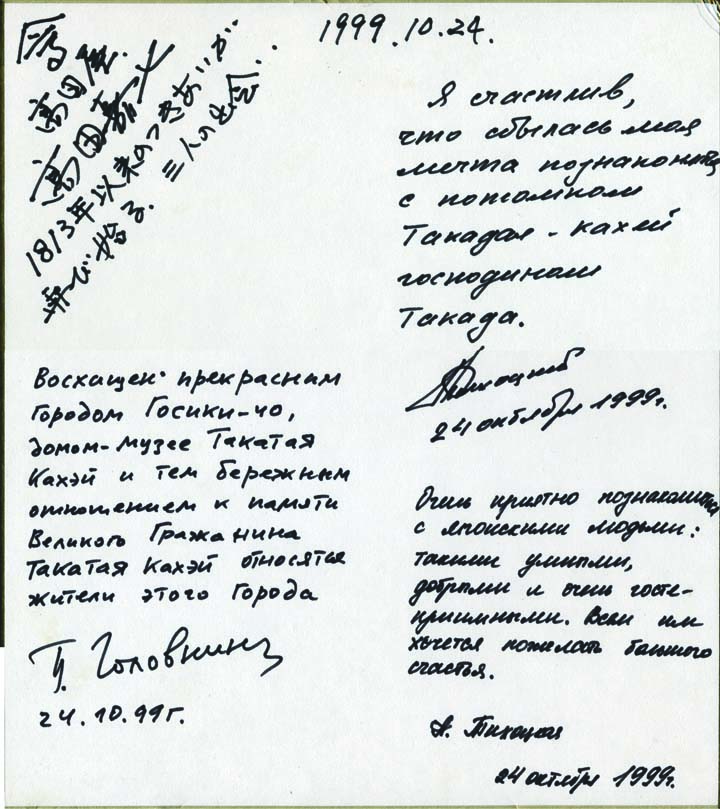 1999.10.24.
高田屋.
高田嘉七
1813年以来のつきあいが
再び始る. 三人の出会..
Я счастлив,
что сбылась моя
мечта познакомиться
с потомком
Такадая - кахей
господином
Такада.
24 октября 1999г.
Восхищен прекрасным
городом Госики-чо,
домом-музее Такатая
Кахэй и тем бережным
отношением к памяти
Великого Гражанина
Такатая Кахэй относятся
жители этого Города
П. Головнин
24.10.99г.
Очень приятно познакомиться
с японскими людьми:
такими умными,
добрыми и очень госте-
приимными. Всем им
хочется пожелать большого
счастья.
А. Тихоцкая
24 октября 1999г.